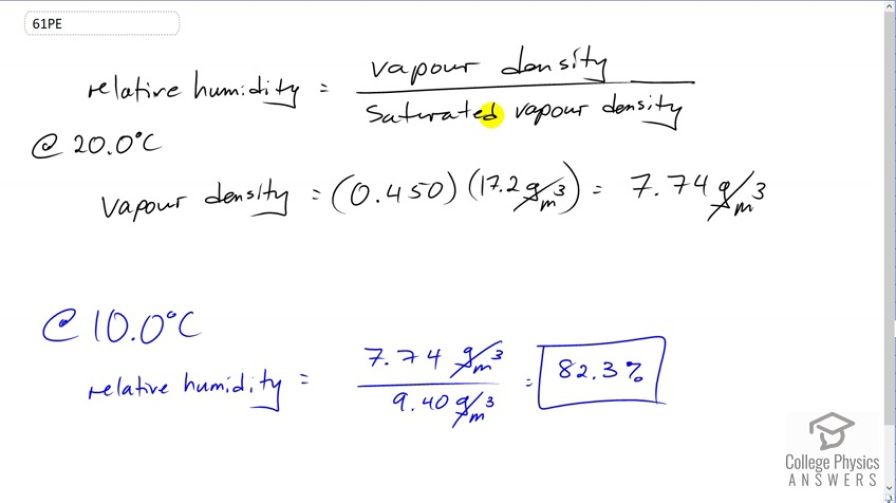 61PE
relative humidity = vapour density / Saturated vapour density
@ 20.0°C
vapour density = (0.450)(17.2 g/m³) = 7.74 g/m³
@ 10.0°C
relative humidity = 7.74 g/m³ / 9.40 g/m³ = 82.3%
College Physics
ANSWERS